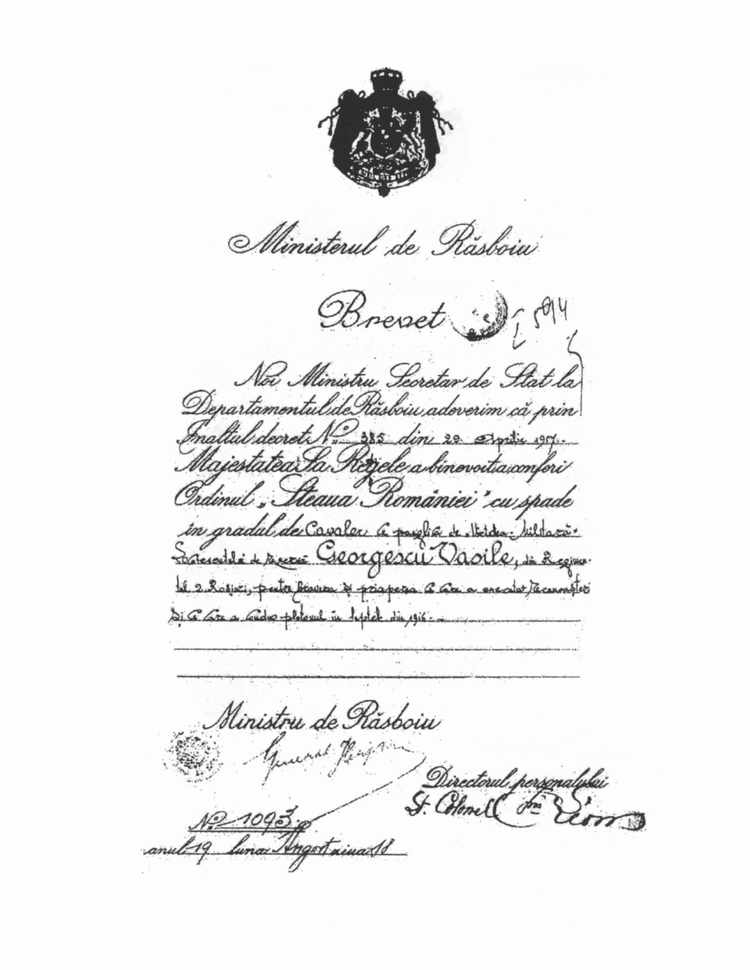 Ministerul de Răsboiu
Brevet
Noi Ministru Secretar de Stat la
Departamentul de Răsboiu adeverim că prin
Inaltul decret No. 385 din 29 Aprilie 1917
Majestatea Sa Regele a binevoit a conferi
Ordinul „Steaua României" cu spade
in gradul de Cavaler cu panglica de Militară
de Georgescu Vasile, din Regimen-
tul 2 Roșiori, pentru bravura și cu care a executat
și cu care a plotonul in Septe din 1916.
Ministru de Răsboiu
General
Directorul personalului
Lt. Colonel
No. 1093
anul 19 luna August ziua 18